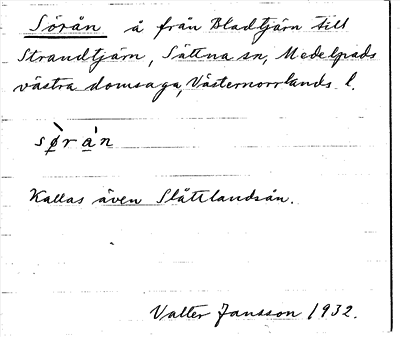 Sörån å från Bladtjärn till
Strandtjärn, Sättna sn, Medelpads
västra domsaga, Västernorrlands l.
sø̀r á̲n
Kallas även Slättlandsån.
Valter Jansson 1932.